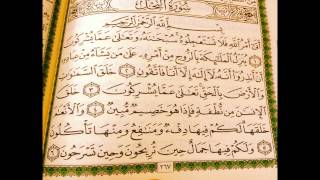 سُورَةُ النَّحۡلِ
بِسۡمِ ٱللَّهِ ٱلرَّحۡمَٰنِ ٱلرَّحِيمِ
أَتَىٰٓ أَمۡرُ ٱللَّهِ فَلَا تَسۡتَعۡجِلُوهُۚ سُبۡحَٰنَهُۥ وَتَعَٰلَىٰ عَمَّا يُشۡرِكُونَ ١
يُنَزِّلُ ٱلۡمَلَٰٓئِكَةَ بِٱلرُّوحِ مِنۡ أَمۡرِهِۦ عَلَىٰ مَن يَشَآءُ مِنۡ عِبَادِهِۦٓ
أَنۡ أَنذِرُوٓاْ أَنَّهُۥ لَآ إِلَٰهَ إِلَّآ أَنَا۠ فَٱتَّقُونِ ٢ خَلَقَ ٱلسَّمَٰوَٰتِ
وَٱلۡأَرۡضَ بِٱلۡحَقِّۚ تَعَٰلَىٰ عَمَّا يُشۡرِكُونَ ٣ خَلَقَ
ٱلۡإِنسَٰنَ مِن نُّطۡفَةٖ فَإِذَا هُوَ خَصِيمٞ مُّبِينٞ ٤ وَٱلۡأَنۡعَٰمَ
خَلَقَهَاۖ لَكُمۡ فِيهَا دِفۡءٞ وَمَنَٰفِعُ وَمِنۡهَا تَأۡكُلُونَ ٥
وَلَكُمۡ فِيهَا جَمَالٌ حِينَ تُرِيحُونَ وَحِينَ تَسۡرَحُونَ ٦
٢٦٧